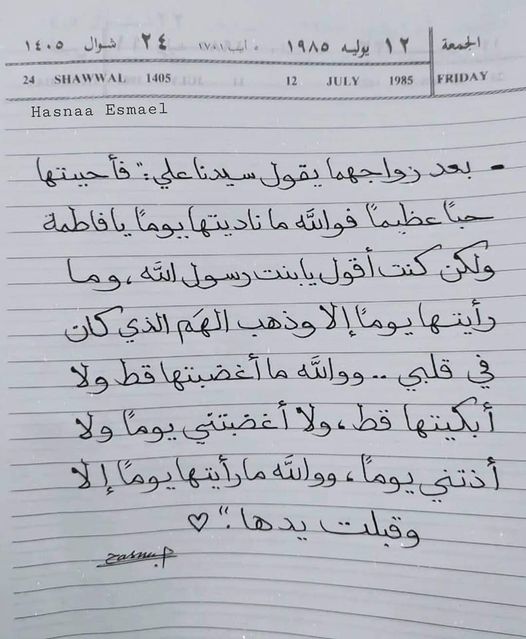 الجمعة ١٢ يوليه ١٩٨٥ ٢٤ شوال ١٤٠٥
24 SHAWWAL 1405 12 JULY 1985 FRIDAY
Hasnaa Esmael
- بعد زواجهما يقول سيدنا علي: "فأحببتها
حبًا عظيمًا فوالله ما ناديتها يومًا يا فاطمة
ولكن كنت أقول يا بنت رسول الله، وما
رأيتها يومًا إلا وذهب الهَم الذي كان
في قلبي .. ووالله ما أغضبتها قط ولا
أبكيتها قط، ولا أغضبتني يومًا ولا
أذتني يومًا، ووالله ما رأيتها يومًا إلا
وقبلت يدها." ♡